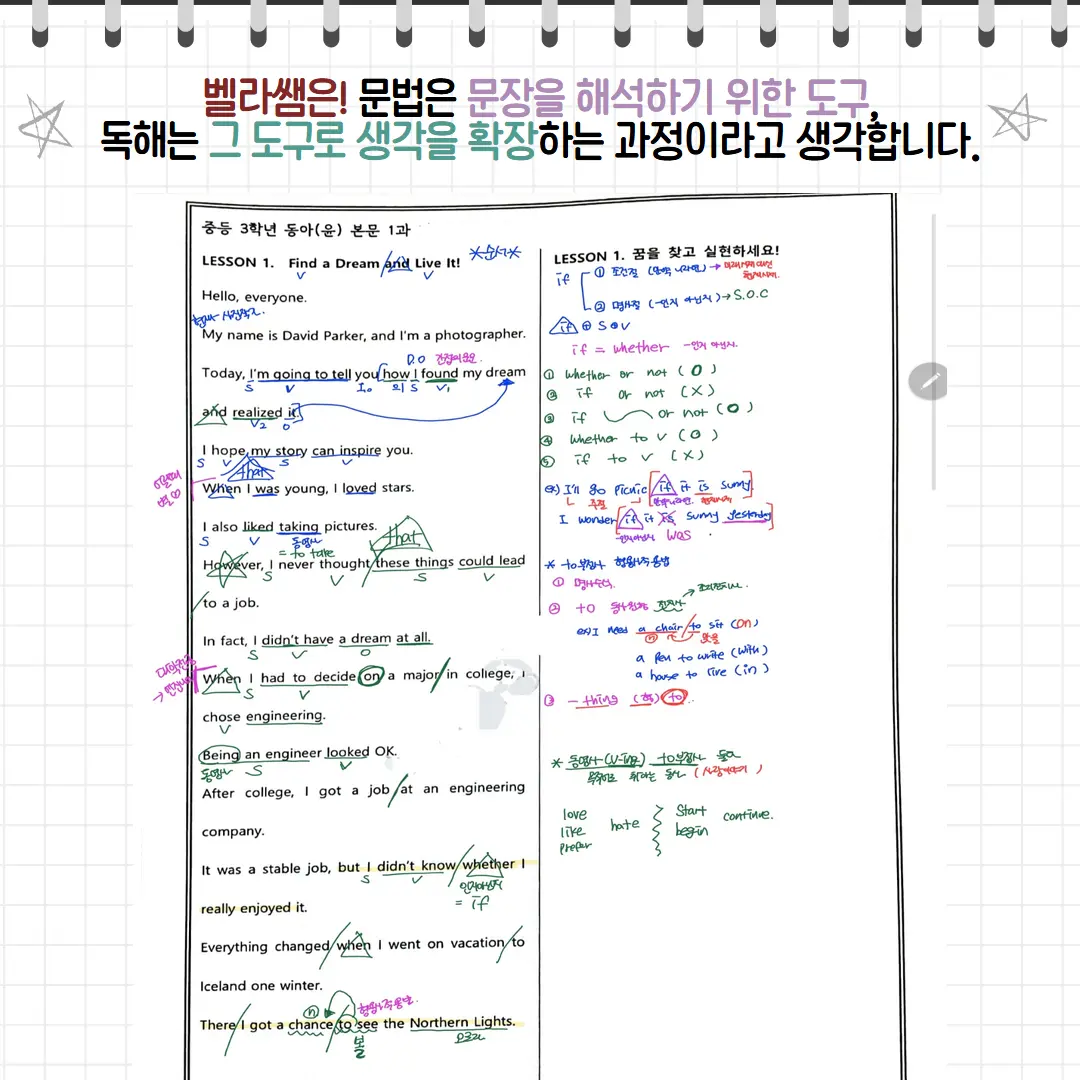 벨라쌤은! 문법은 문장을 해석하기 위한 도구,
독해는 그 도구로 생각을 확장하는 과정이라고 생각합니다.
중등 3학년 동아(윤) 본문 1과
LESSON 1. Find a Dream and Live It!
*순서*
V V
Hello, everyone.
My name is David Parker, and I'm a photographer.
D.O 간접의문문.
Today, I'm going to tell you how I found my dream
S V I.O 의 S V₁
and realized it.
V₂ O
I hope my story can inspire you.
S V S V
that
When I was young, I loved stars.
I also liked taking pictures.
S V 동명사
= to take
that
However, I never thought these things could lead
S V S V
to a job.
In fact, I didn't have a dream at all.
S V O
When I had to decide on a major in college, I
S V
chose engineering.
V
Being an engineer looked OK.
동명사 S V
After college, I got a job at an engineering
company.
It was a stable job, but I didn't know whether I
S V
인지아닌지
= if
really enjoyed it.
Everything changed when I went on vacation to
Iceland one winter.
n 형용사적용법.
There I got a chance to see the Northern Lights.
볼 오로라
LESSON 1. 꿈을 찾고 실현하세요!
if ① 조건절 (만약 ~라면) →
② 명사절 (~인지 아닌지) → S.O.C
if + S + V
if = whether ~인지 아닌지.
① whether or not (O)
② if or not (X)
③ if or not (O)
④ whether to V (O)
⑤ if to V (X)
ex) I'll go picnic if it is sunny.
주절 만약~라면 현재시제
I wonder if it is sunny yesterday
~인지아닌지 was
* to부정사 형용사적용법
① 명사수식.
② to 동사원형 전치사
ex) I need a chair to sit (on)
n 앉을
a pen to write (with)
a house to live (in)
③ -thing (형) to
* 동명사(V-ing) to부정사 둘다
목적어로 취하는 동사 ( )
love
like hate
prefer
start
begin continue.